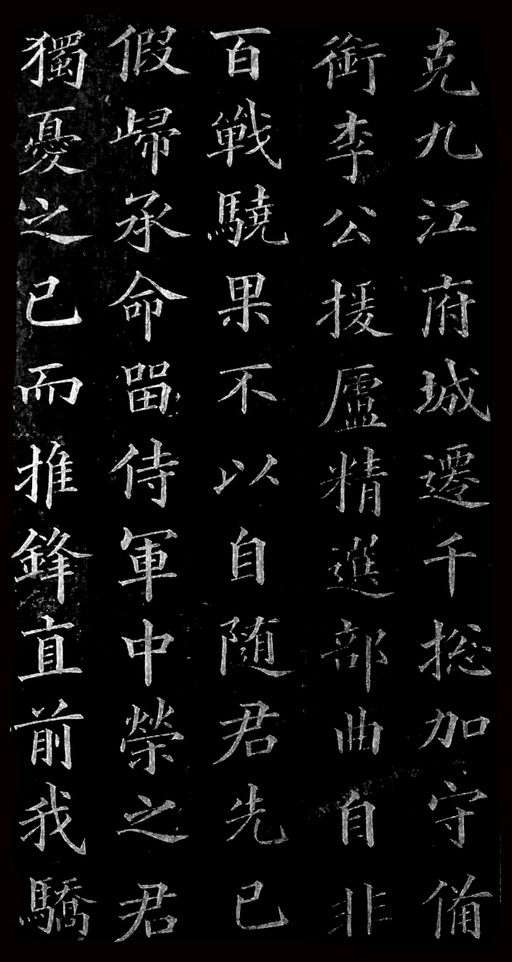 克九江府城遷千捴加守俻
銜李公援廬精選部曲自非
百戰驍果不以自随君先已
假歸承命留侍軍中榮之君
獨憂之已而推鋒直前我驕